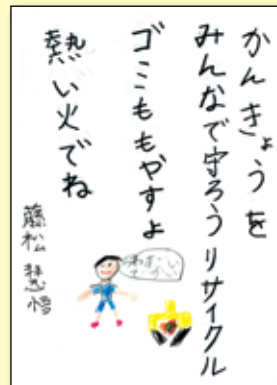 かんきょうを
みんなで守ろうリサイクル
ゴミももやすよ
熱い火でね
藤松